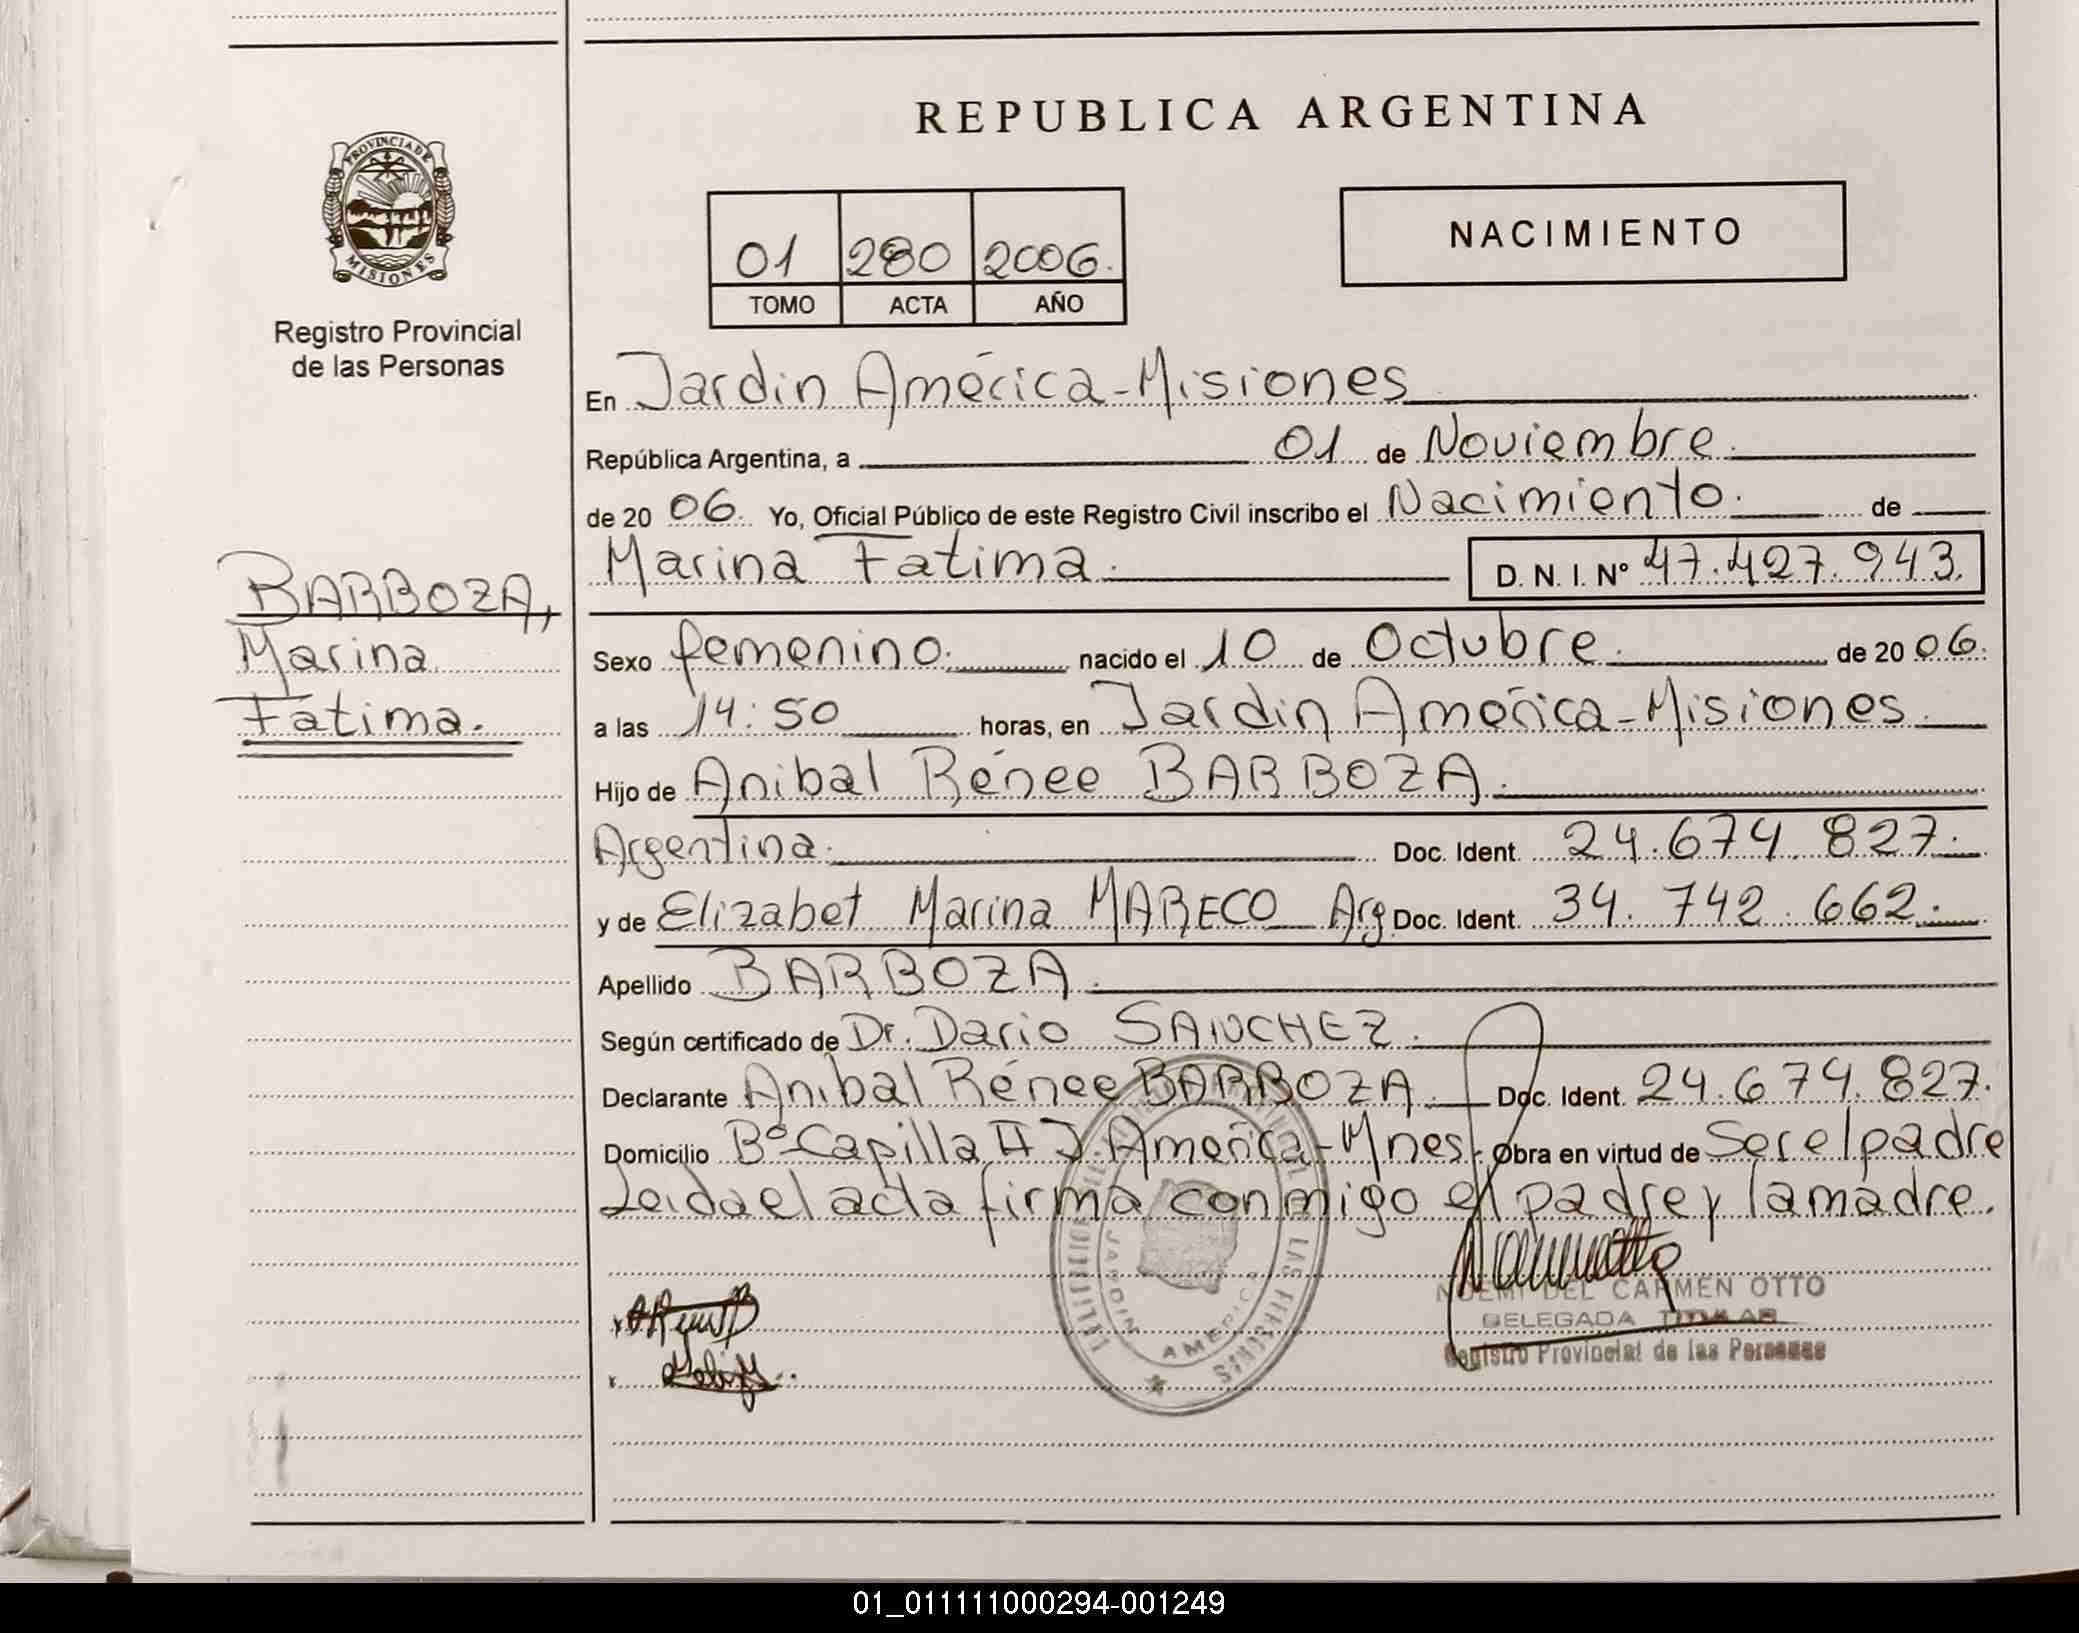 REPUBLICA ARGENTINA
PROVINCIA DE
MISIONES
Registro Provincial
de las Personas
01 280 2006.
TOMO ACTA AÑO
NACIMIENTO
En Jardin América - Misiones
República Argentina, a 01 de Noviembre.
de 20 06. Yo, Oficial Público de este Registro Civil inscribo el Nacimiento. de
Marina Fatima. D. N. I. Nº 47.427.943.
BARBOZA,
Marina
Fatima.
Sexo femenino. nacido el 10 de Octubre. de 20 06.
a las 14:50 horas, en Jardin América - Misiones
Hijo de Anibal Rénee BARBOZA.
Argentina. Doc. Ident. 24.674.827.
y de Elizabet Marina MARECO Arg Doc. Ident. 34.742.662.
Apellido BARBOZA.
Según certificado de Dr. Dario SANCHEZ.
Declarante Anibal Rénee BARBOZA. Doc. Ident. 24.674.827.
Domicilio Bº Capilla II J. América - Mnes. Obra en virtud de Ser el padre
Leida el acta firma conmigo el padre y la madre.
JARDIN AMERICA
LAS PERSONAS
NOEMI DEL CARMEN OTTO
DELEGADA TITULAR
Registro Provincial de las Personas
01_011111000294-001249